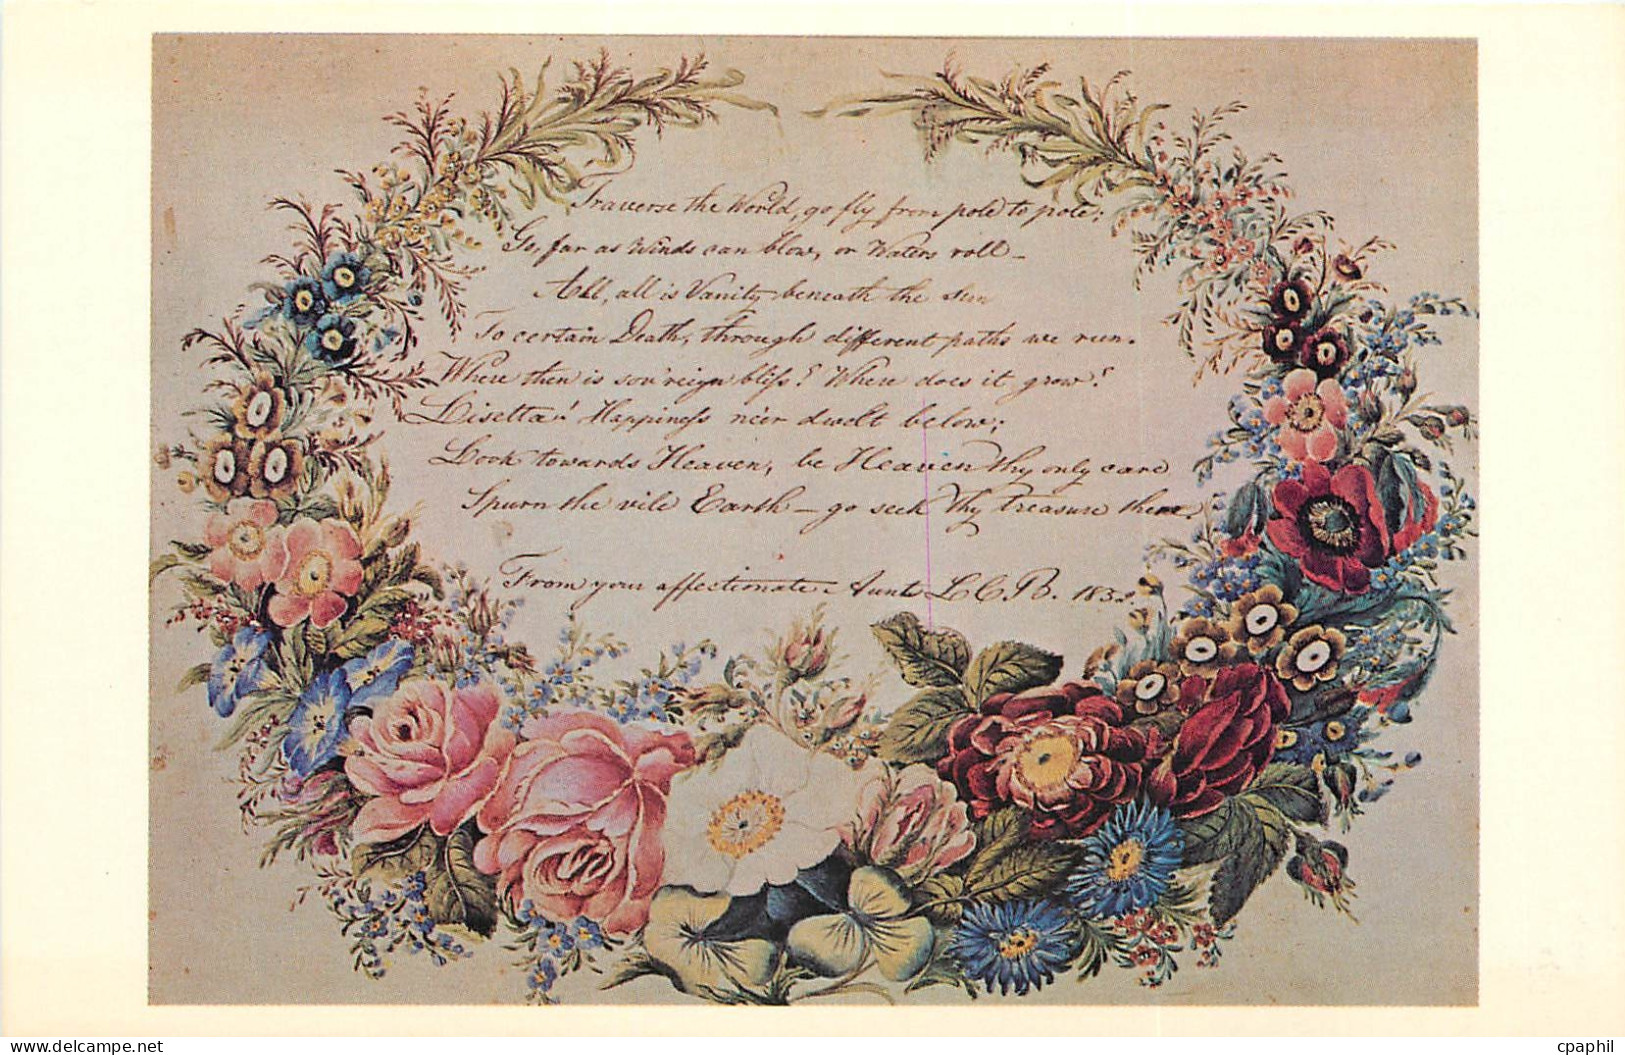 Traverse the World, go fly from pole to pole;
Go, far as Winds can blow, or Waters roll –
All, all is Vanity beneath the sun
To certain Death, through different paths we run.
Where then is sov'reign bliss? Where does it grow?
Lisetta! Happiness ne'er dwelt below;
Look towards Heaven, be Heaven thy only care
Spurn the vile Earth – go seek thy treasure there.
From your affectionate Aunt L C B. 1832.
delcampe.net
cpaphil